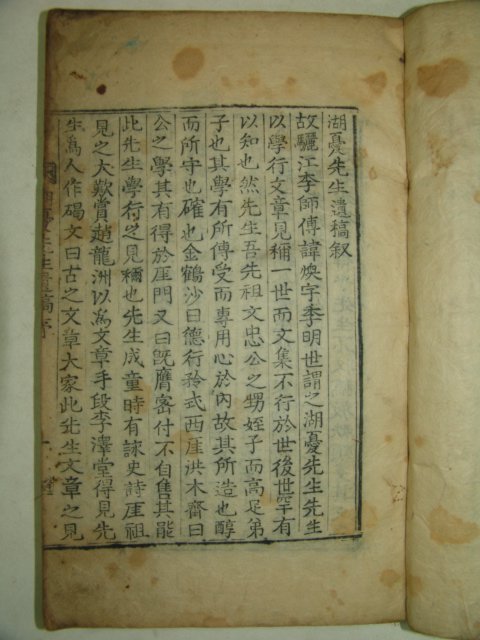 湖憂先生遺稿叙
故驪江李師傅諱煥字季明世謂之湖憂先生先生
以學行文章見稱一世而文集不行於世後世罕有
以知也然先生吾先祖文忠公之甥姪子而高足弟
子也其學有所傳受而專用心於內故其所造也醇
而所守也確也金鶴沙曰德行矜式西厓洪木齋曰
公之學其有得於厓門又曰旣膺密付不自售其能
此先生學行之見稱也先生成童時有詠史詩厓祖
見之大歎賞趙龍洲以爲文章手段李澤堂得見先
生爲人作碣文曰古之文章大家此先生文章之見
先生遺稿序
一